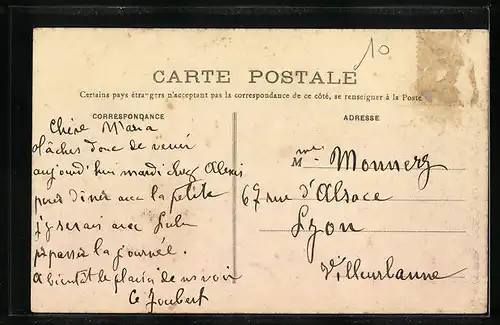 10
CARTE POSTALE
Certains pays étrangers n'acceptant pas la correspondance de ce côté, se renseigner à la Poste
CORRESPONDANCE
Chère Maria
tâches donc de venir
aujourd'hui mardi chez Alexis
pour diner avec la petite
j'y serais avec Lulu
passer la journée.
a bientôt le plaisir de vs voir
Ce Joubert
ADRESSE
Mme Monnerg
67 rue d'Alsace
Lyon
Villeurbanne